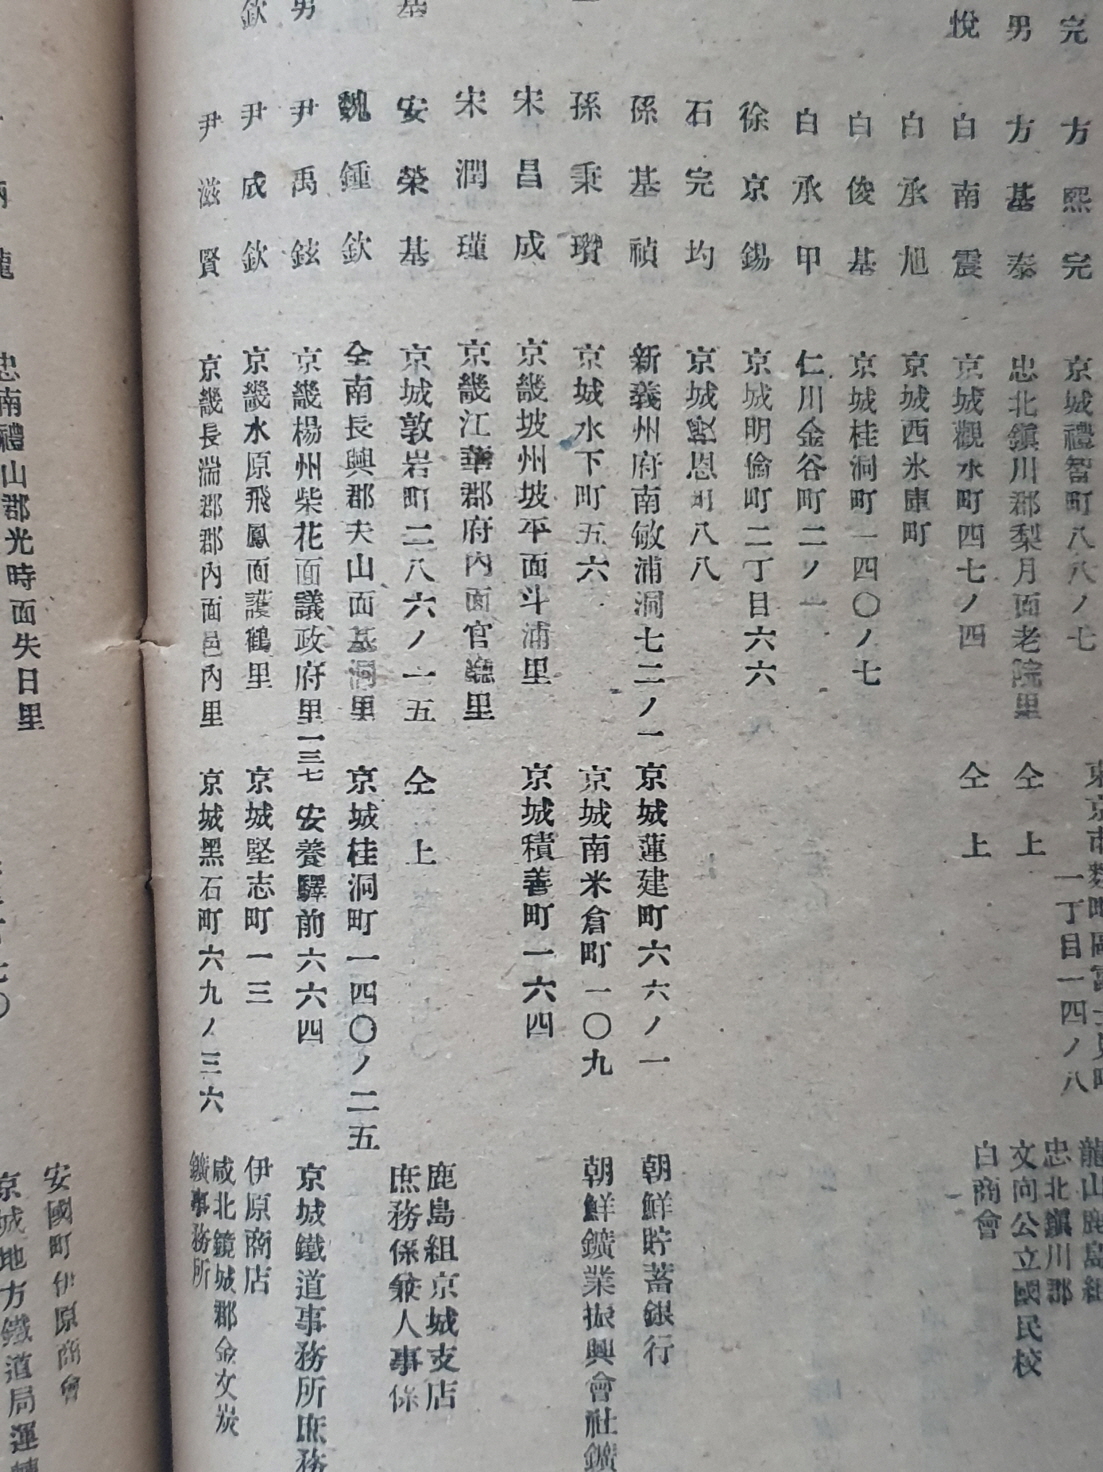 完 方熙完 京城禮智町八八ノ七 龍山鹿島組
男 方基泰 忠北鎭川郡梨月面老院里 仝上 忠北鎭川郡
文向公立國民校
一丁目一四ノ八
悅 白南震 京城觀水町四七ノ四 仝上 白商會
白承旭 京城西氷庫町
白俊基 京城桂洞町一四〇ノ七
白承甲 仁川金谷町二ノ一
徐京錫 京城明倫町二丁目六六
石完均 京城 恩町八八
孫基禎 新義州府南敏浦洞七二ノ一 京城蓮建町六六ノ一 朝鮮貯蓄銀行
孫秉瓚 京城水下町五六 京城南米倉町一〇九 朝鮮鑛業振興會社鑛
宋昌成 京畿坡州坡平面斗浦里 京城積善町一六四
宋潤瑾 京畿江華郡府內面官廳里
基 安榮基 京城敦岩町二八六ノ一五 仝上 鹿島組京城支店
庶務係兼人事係
魏鍾欽 全南長興郡夫山面基洞里 京城桂洞町一四〇ノ二五
男 尹禹鉉 京畿楊州柴花面議政府里一三七 安養驛前六六四 京城鐵道事務所庶務
欽 尹成欽 京畿水原飛鳳面護鶴里 京城堅志町一三 伊原商店
尹滋賢 京畿長湍郡郡內面邑內里 京城黑石町六九ノ三六 咸北鏡城郡金文炭
鑛事務所
龍 忠南禮山郡光時面失日里 安國町伊原商會
京城地方鐵道局運轉